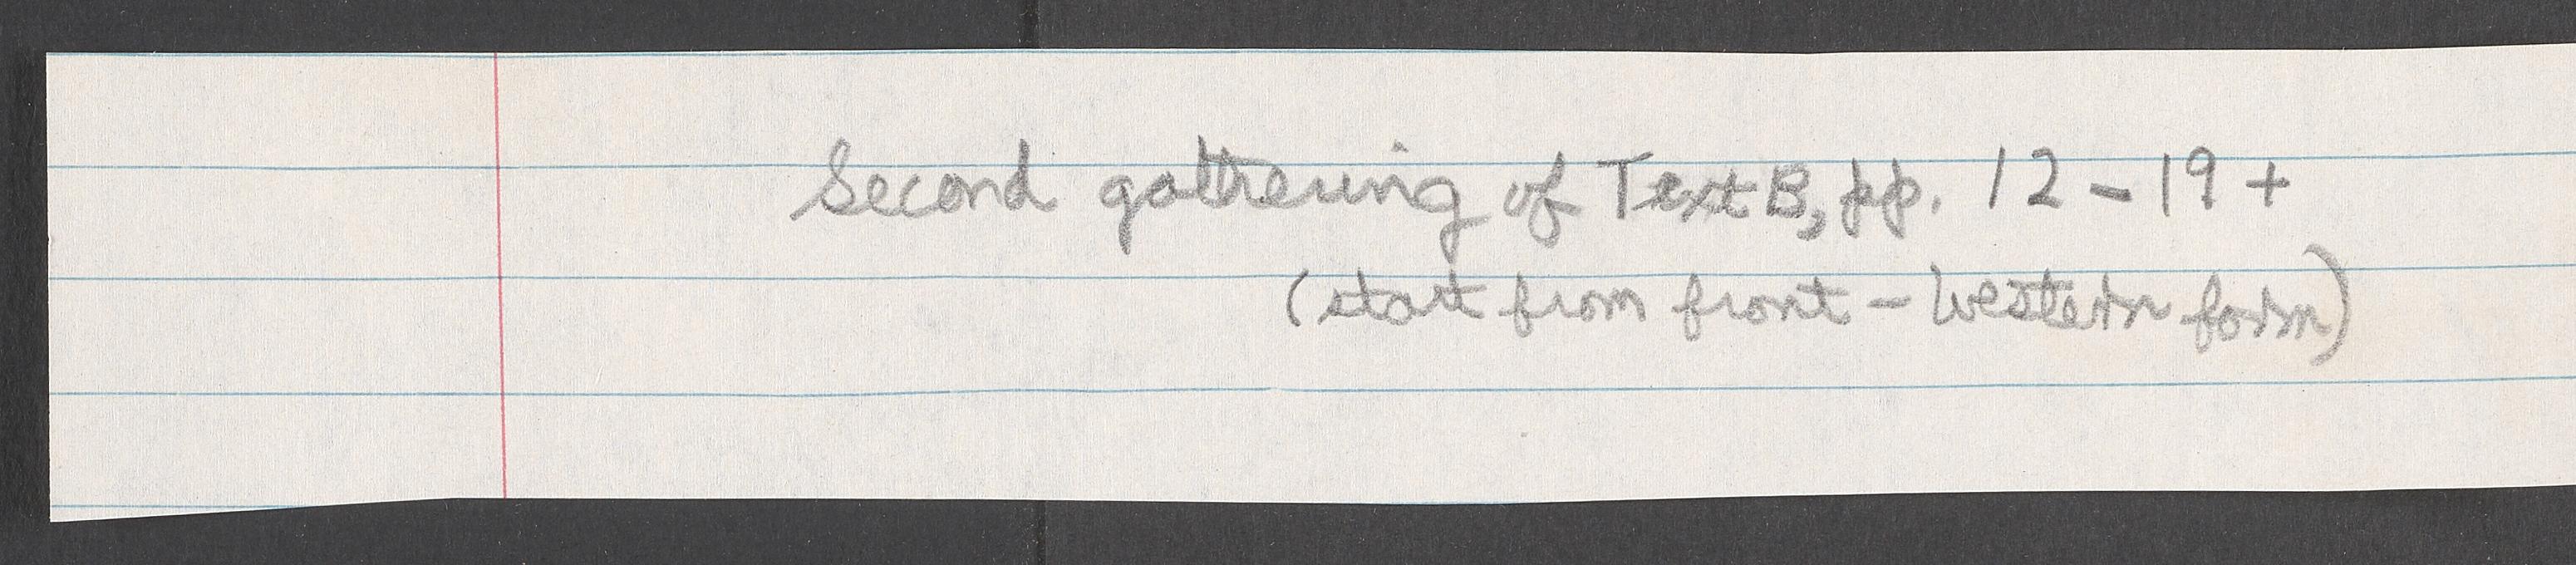 Second gathering of Text B, pp. 12 - 19 +
(start from front - Western form)